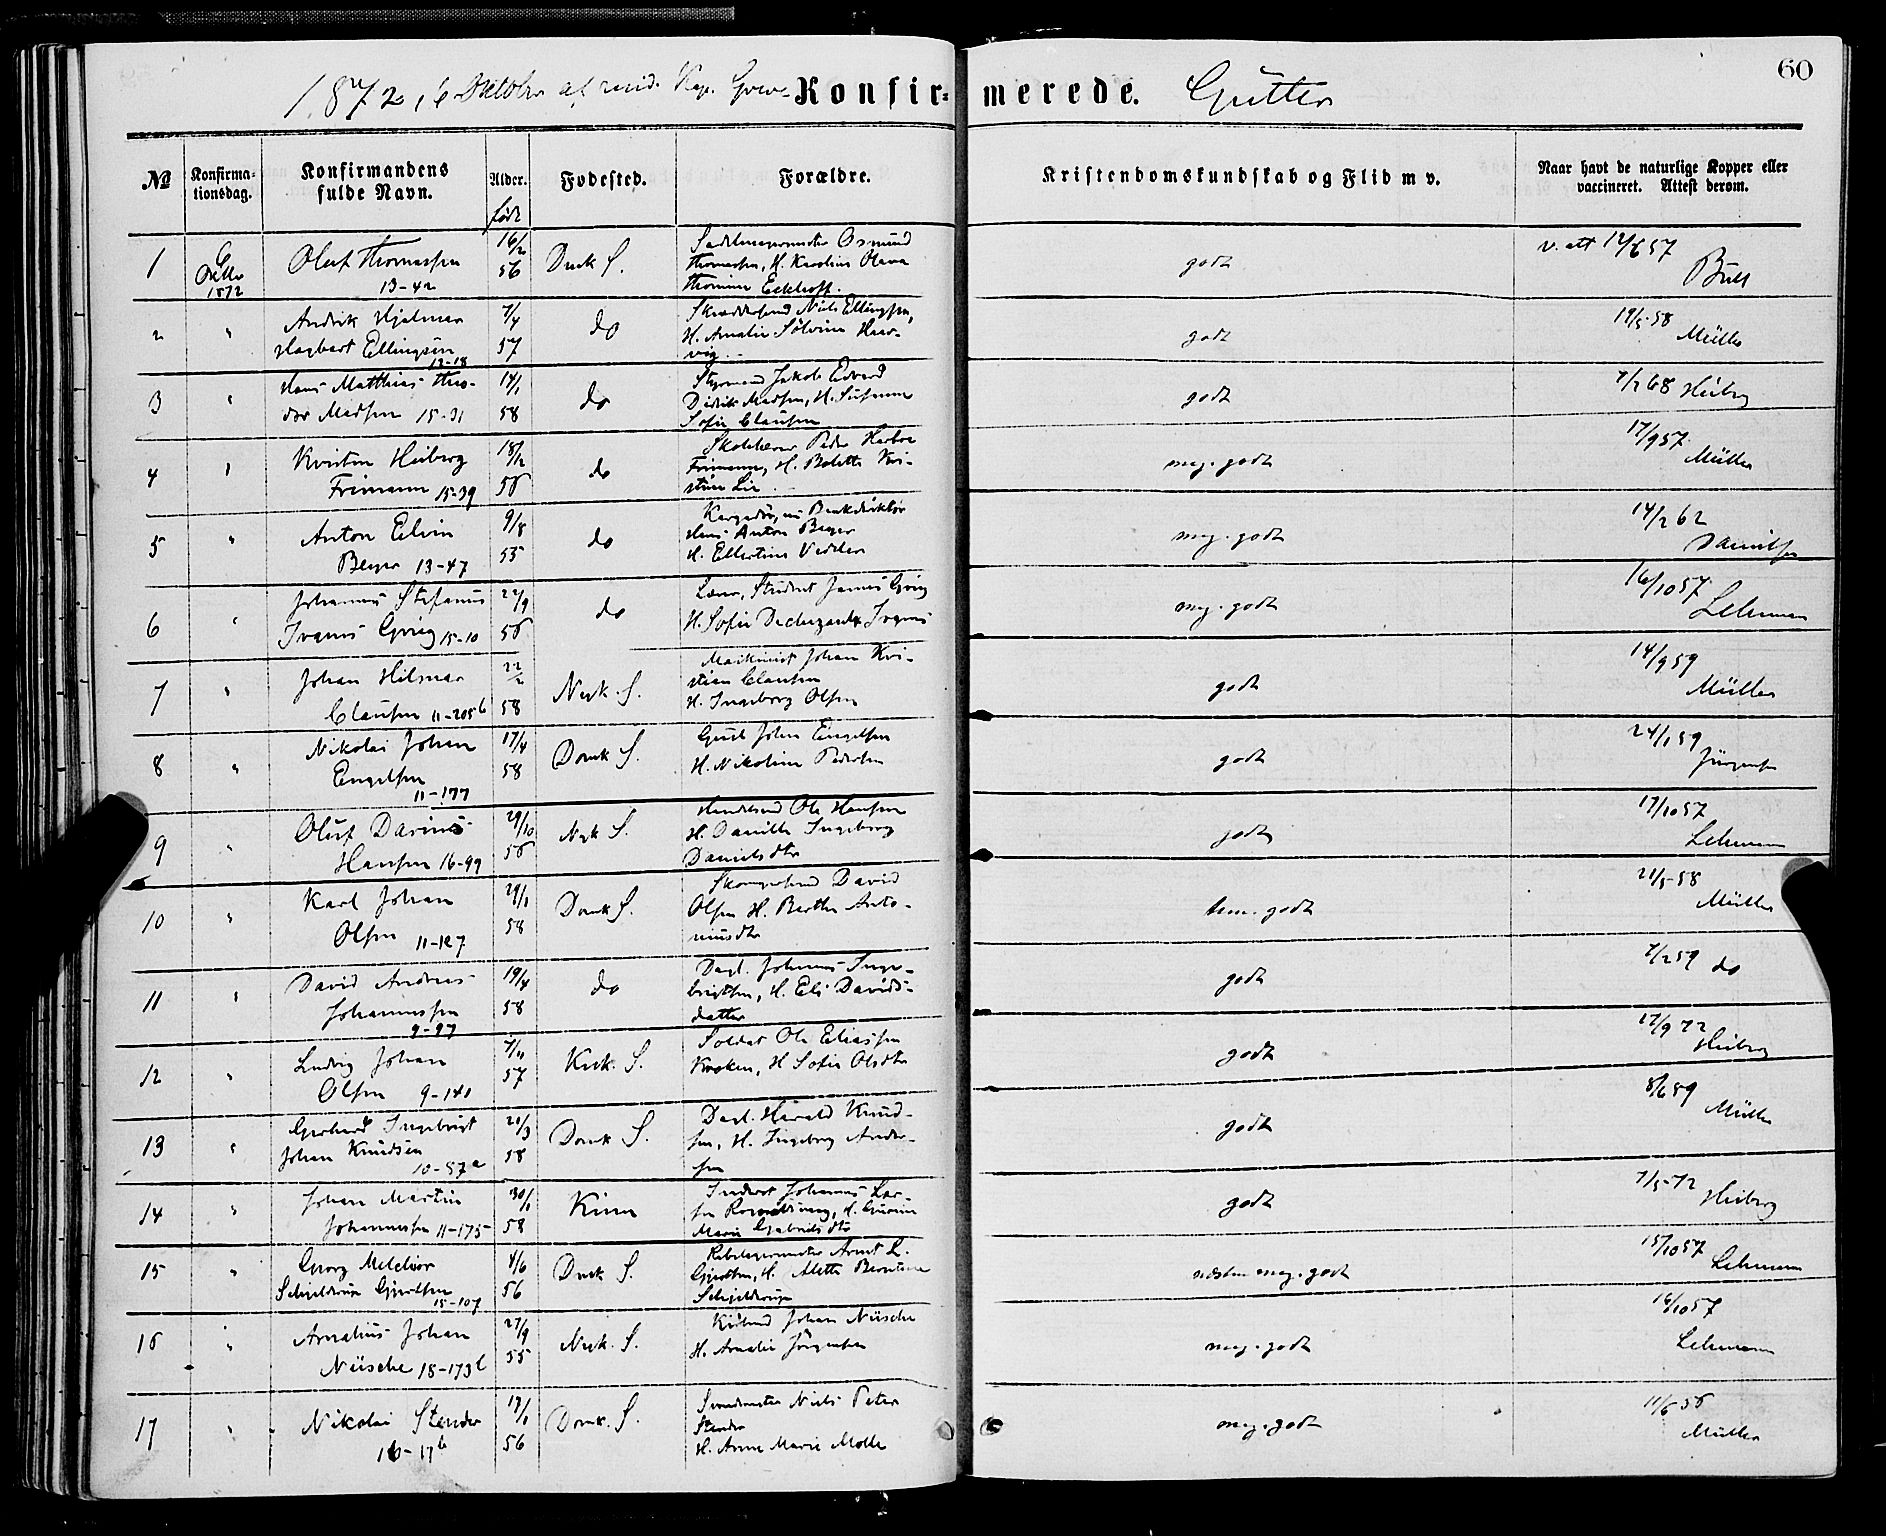 60
1872, 6 Oktober af resid. Kap.
Konfir- merede. Gutter
№
Konfirma-
tionsdag.
Konfirmandens
fulde Navn.
Alder.
født
Fødested.
Forældre.
Kristendomskundskab og Flid m v.
Naar havt de naturlige Kopper eller
vaccineret. Attest derom.
1 6 Oktbr 1872
Oluf Thomassen
13-42
16/2 56
Domk S.
Sadelmagermester Osmund
Thomassen, H. Karoline Olava
Eckhoff.
godt
v. att 12/6 57
Bull
2 "
Andrik Hjalmar
Hagbart Ellingsen
13-18
7/4 57
do
Niels Ellingsen,
H. Amalie Haar-
vig
godt
19/5 58
Müller
3 "
Hans Matthias Theo-
dor Madsen 15-31
14/1 58
do
Styrmand Jakob Edvard
Didrik Madsen, H. Susanne
Sofie Clausen
godt
7/2 68 Heiberg
4 "
Kristen Heiberg
Frimann 15-39
18/12
do
Skolelærer Peder Harboe
Frimann, H. Bolette Kri-
stine Lie
meg. godt
17/9 57
Müller
5 "
Anton Elvin
Beyer 13-47
9/8 55
do
Hans Anton Beyer
H. Ellertine Vedeler
meg. godt
14/2 62
Danielsen
6 "
Johannes Stefanus
Ivanus Grieg 15-10
22/9
do
Lærer, Student James Grieg
H. Sofie
meg. godt
16/10 57
Lehmann
7 "
Johan Hilmar
Clausen 11-205b
22/2 58
Nyk. S.
Maskinist Johan Kri-
stian Clausen
H. Ingeborg Olsen
godt
14/9 59
Müller
8 "
Nikolai Johan
Engelsen
11-177
17/4 58
Domk S.
John Engelsen
H. Nikoline Pedersen
godt
24/1 59
Jürgensen
9 "
Oluf Darius
Hansen 16-99
29/10
Nyk S.
Ole Hansen
H. Danille Ingeborg
Danielsdtr
godt
17/10 57
Lehmann
10 "
Karl Johan
Olsen 11-127
29/1 58
Domk S.
David
Olsen H. Berthe Anto-
niusdtr
tem. godt
21/5 58
Müller
11 "
David Andreas
Johannessen
9-97
19/4 58
do
Dagl. Johannes Inge-
brigtsen, H. Eli Davids-
datter
godt
7/2 59 do
12 "
Ludvig Johan
Olsen 9-140
7/11 57
Krk. S.
Soldat Ole Eliassen
Kroken, H Sofie Olsdtr
godt
17/9 72
Heiberg
13 "
Gerhard Ingebrigt
Johan Knudsen
10-57a
20/3 58
Domk S.
Dagl. Harald Knud-
sen, H. Ingeborg Ander-
sen
godt
8/6 59
Müller
14 "
Johan Martin
Johannessen 11-175
30/1 58
Kinn
Johannes Lar-
sen
Marie Gabrielsdtr
godt
7/5 72
Heiberg
15 "
Georg Melchior
Schjelderup Gjertsen
15-107
4/6 56
Domk S.
Arent L.
Gjertsen, H. Alette Berntine
Schjelderup
næsten meg. godt
15/10 57
Lehmann
16 "
Amalius Johan
Nüsche 18-173b
27/9 55
Nyk. S.
Johan Nüsche
H. Amalie Jörgensen
meg. godt
16/10 57
Lehmann
17 "
Nikolai Stender
16-17b
19/1 56
Domk. S.
Niels Peter
Stender
H. Anne Marie Molle
meg. godt
11/6 56
Müller